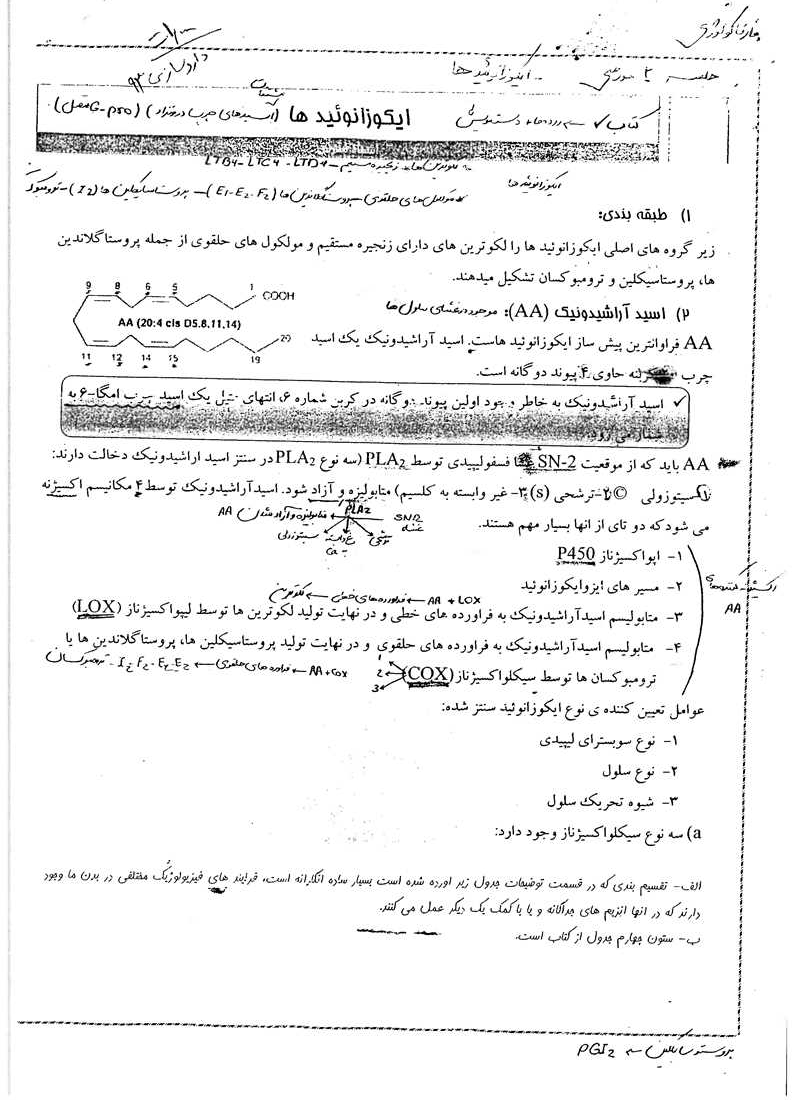 فارماکولوژی
جلسه ۲ مورخ
ایکوزانوئیدها
داروسازی ۹۲
کتاب ✓
ایکوزانوئید ها
(G-pro
LTB4 - LTC4 - LTD4
ایکوزانوئیدها
مولکول های حلقوی → پروستاگلاندین ها (E1-E2-F2) - پروستاسیکلین ها (I2) -
۱) طبقه بندی:
زیر گروه های اصلی ایکوزانوئید ها را لکوترین های دارای زنجیره مستقیم و مولکول های حلقوی از جمله پروستاگلاندین
ها، پروستاسیکلین و ترومبوکسان تشکیل میدهند.
۲) اسید آراشیدونیک (AA): موجود در غشای سلول ها
AA فراوانترین پیش ساز ایکوزانوئید هاست. اسید آراشیدونیک یک اسید
چرب ۲۰ کربنه حاوی ۴ پیوند دوگانه است.
9 8 6 5 1 COOH
AA (20:4 cis D5.8.11,14)
20
11 12 14 15 19
✓ اسید آراشیدونیک به خاطر وجود اولین پیوند دوگانه در کربن شماره ۶، انتهای متیل یک اسید چرب امگا-۶ به
شمار می رود.
AA باید که از موقعیت SN-2 فسفولیپیدی توسط PLA2 (سه نوع PLA2 در سنتز اسید اراشیدونیک دخالت دارند:
۱-سیتوزولی © ۲-ترشحی (s) ۳- غیر وابسته به کلسیم) متابولیزه و آزاد شود. اسیدآراشیدونیک توسط ۴ مکانیسم اکسیژنه
می شود که دو تای از انها بسیار مهم هستند.
SN2 PLA2 متابولیزه و آزاد شدن AA
سیتوزولی
ترشحی
۱- اپواکسیژناز P450
۲- مسیر های ایزوایکوزانوئید
AA + LOX → فراورده های خطی → لکوترین
۳- متابولیسم اسیدآراشیدونیک به فراورده های خطی و در نهایت تولید لکوترین ها توسط لیپواکسیژناز (LOX)
۴- متابولیسم اسیدآراشیدونیک به فراورده های حلقوی و در نهایت تولید پروستاسیکلین ها، پروستاگلاندین ها یا
ترومبوکسان ها توسط سیکلواکسیژناز (COX)
1
2
3
AA + COX → فراورده های حلقوی → E2 - F2 - I2 - ترومبوکسان
AA
عوامل تعیین کننده ی نوع ایکوزانوئید سنتز شده:
۱- نوع سوبسترای لیپیدی
۲- نوع سلول
۳- شیوه تحریک سلول
a) سه نوع سیکلواکسیژناز وجود دارد:
الف- تقسیم بندی که در قسمت توضیحات جدول زیر اورده شده است بسیار ساده انگارانه است، فرایند های فیزیولوژیک مختلفی در بدن ما وجود
دارند که در انها انزیم های جداگانه و یا با کمک یک دیگر عمل می کنند.
ب- ستون چهارم جدول از کتاب است.
پروستاسیکلین → PGI2